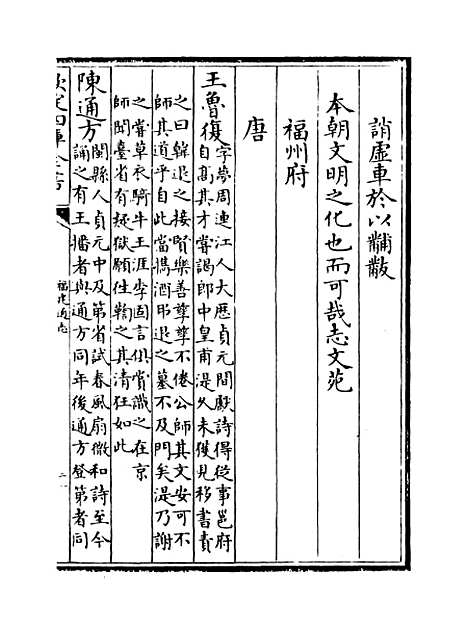 誚虛車於以黼黻
本朝文明之化也而可哉志文苑
福州府
唐
王魯復字夢周連江人大歷貞元間獻詩得從事邕府
自髙其才嘗謁郎中皇甫湜久未獲見移書責
之曰韓退之接賢樂善孳孳不倦公師其文安可不
師其道乎自此當攜酒弔退之墓不及門矣湜乃謝
之嘗草衣騎牛王涯李固言俱賞識之在京
師聞臺省有疑獄願往鞫之其清狂如此
陳通方閩縣人貞元中及第省試春風扇微和詩至今
誦之有王播者與通方同年後通方登第者同
欽定四庫全書
福建通志
二